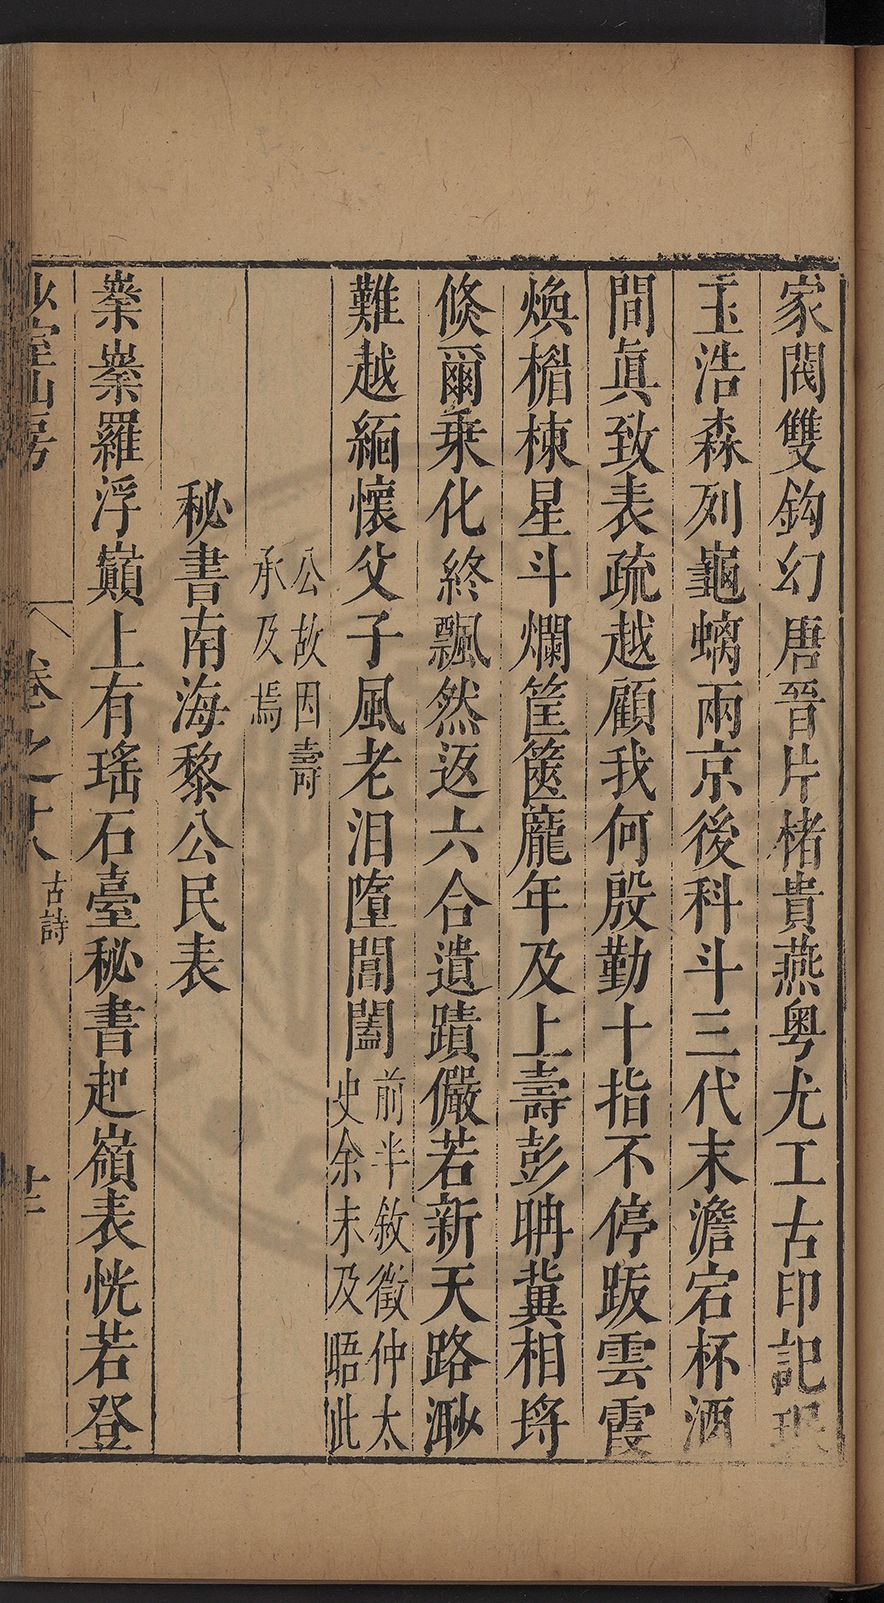 家閥雙鈎幻唐晉片楮貴燕粤尤工古印記
玉浩森列龜螭兩京後科斗三代末澹宕杯酒
間眞致表疏越顧我何殷勤十指不停䟦雲霞
煥楣棟星斗爛筐篋龎年及上壽彭聃冀相埒
倐爾乗化終飄然返六合遺蹟儼若新天路渺
難越緬懷父子風老泪墮閶闔
前半敘徵仲太
史余未及晤此
公故因壽
承及焉
秘書南海黎公民表
業業羅浮巔上有瑤石臺秘書起嶺表恍若登
少室山房
卷之十八
古詩